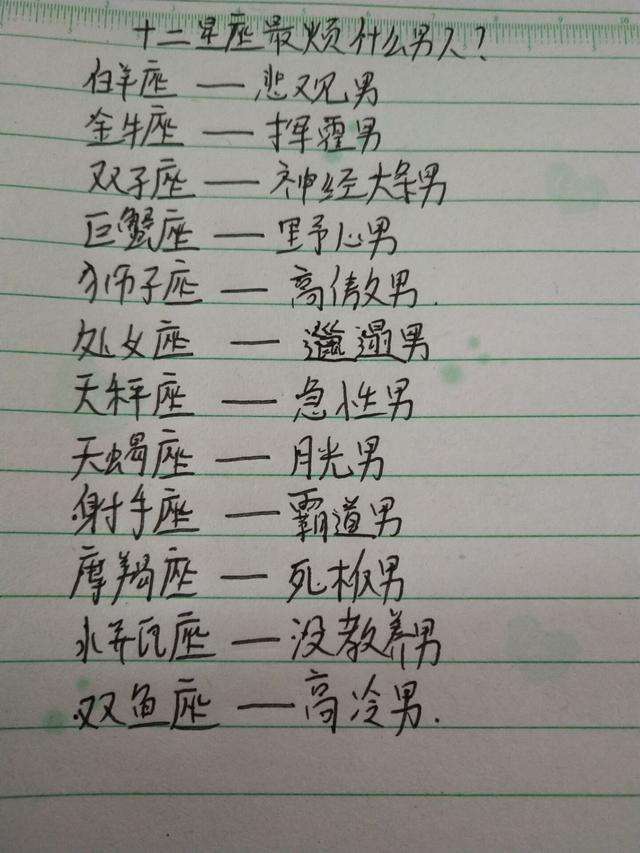 十二星座最烦什么男人?
白羊座——悲观男
金牛座——挥霍男
双子座——神经大条男
巨蟹座——野心男
狮子座——高傲男.
处女座——邋遢男
天秤座——急性男
天蝎座——月光男
射手座——霸道男
摩羯座——死板男
水瓶座——没教养男
双鱼座——高冷男.